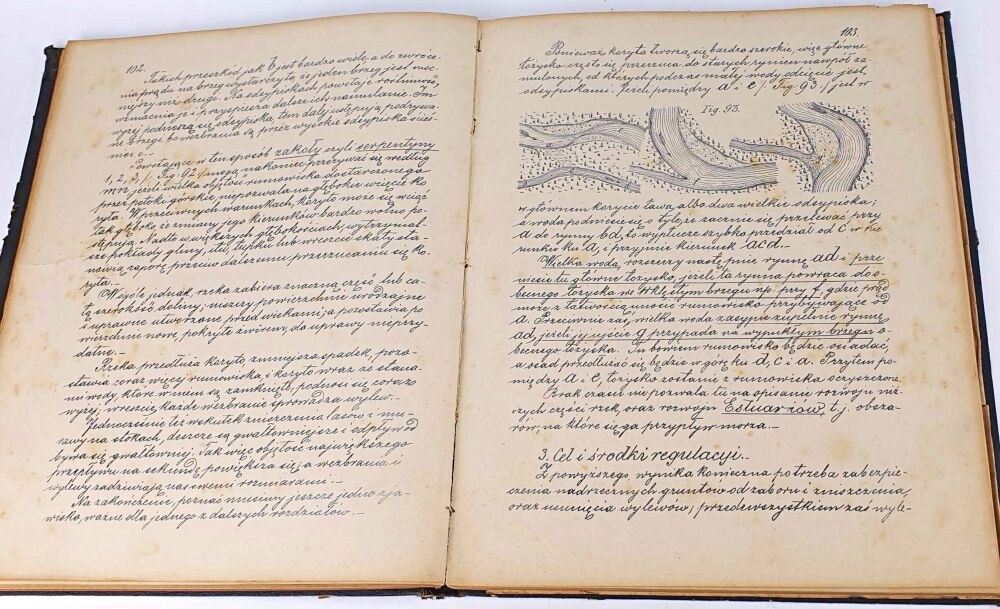 102.
Takich przeszkód jak b jest bardzo wiele, a do zwróce-
nia prądu na brzeg wystarczy to, że jeden brzeg jest moc-
niejszy niż drugi. Na odsypiskach powstaje roślinność,
wzmacnia je i przyspiesza dalsze ich namulanie. Im
wyżej podnoszą się odsypiska, tem dalej ustępują podrywa-
ne brzegi bo wezbrania są przez wysokie odsypiska ście-
nione.—
Powstające w ten sposób zakoly czyli serpentyny
1, 2, 3, /: Fig. 92 :/ mogą nakoniec przerywać się według
m n, jeżeli wielka objętość rumowiska dostarczonego
przez potoki górskie, niepozwala na głębokie wcięcie ko-
ryta. W przeciwnych warunkach, koryto może się wciąć
tak głęboko, że zmiany jego kierunków bardzo wolno po-
stępują. Nadto w większych głębokościach, wytrzymal-
sze pokłady gliny, iłu, łupku lub wreszcie skały sta-
nowią zaporę przeciw dalszemu przerzucaniu się ko-
ryta.—
Wogóle jednak, rzeka zabiera znaczną część lub ca-
łą szerokość doliny; niszczy powierzchnie urodzajne
i uprawne utworzone przed wiekami; a pozostawia po-
wierzchnie nowe, pokryte żwirem, do uprawy nieprzy-
datne.—
Rzeka przedłuża koryto, zmniejsza spadek, pozo-
stawia coraz więcej rumowiska, i koryto wraz ze stana-
mi wody, które w niem są zamknięte, podnosi się coraz
wyżej, wreszcie każde wezbranie sprowadza wylew.—
Jednocześnie też wskutek zniszczenia lasów i mu-
rawy na stokach, deszcze są gwałtowniejsze i odpływ od-
bywa się gwałtowniej. Tak więc objętość największego
przepływu na sekundę, powiększa się; a wezbrania i
wylewy zadziwiają nas swemi rozmiarami.—
Na zakończenie, poznać musimy jeszcze jedno zja-
wisko, ważne dla jednego z dalszych rozdziałów.—
103.
Ponieważ koryta tworzą się bardzo szerokie, więc główne
łożysko często się przerzuca do starych rynien na wpół za-
mulonych, od których podczas małej wody odcięte jest
odsypiskami. Jeżeli pomiędzy a i c /: Fig. 93 :/ jest w
Fig. 93.
w głównem korycie ława, albo dwa wielkie odsypiska;
a woda podniesie się o tyle, że zacznie się przelewać przy
a do rynny bd, to wypłucze szybko przedział od c w kie-
runku ku a, i przyjmie kierunek acd.—
Wielka woda, rozszerzy następnie rynnę ad i prze-
niesie tu główne łożysko, jeżeli ta rynna powraca do o-
becnego łożyska we wklęsłym brzegu np. przy f, gdzie prąd
może z łatwością unosić rumowisko przybywające od
a. Przeciwnie zaś, wielka woda zasypie zupełnie rynnę
ad, jeżeli jej ujście g przypada na wypukłym brzegu o-
becnego łożyska. Tu bowiem rumowisko będzie osiadać,
a osad przedłużać się będzie w górę ku d, c i a. Przytem po-
między a i e, łożysko zostanie z rumowiska oczyszczone.
Brak czasu nie pozwala tu na opisanie rozwoju niż-
szych części rzek, oraz rozwoju Estuarzów, t. j. obsza-
rów, na które sięga przypływ morza.—
3. Cel i środki regulacyi.—
Z powyższego, wynika konieczna potrzeba zabezpie-
czenia nadrzecznych gruntów od zaboru i zniszczenia,
oraz usunięcia wylewów; przedewszystkiem zaś wyle-